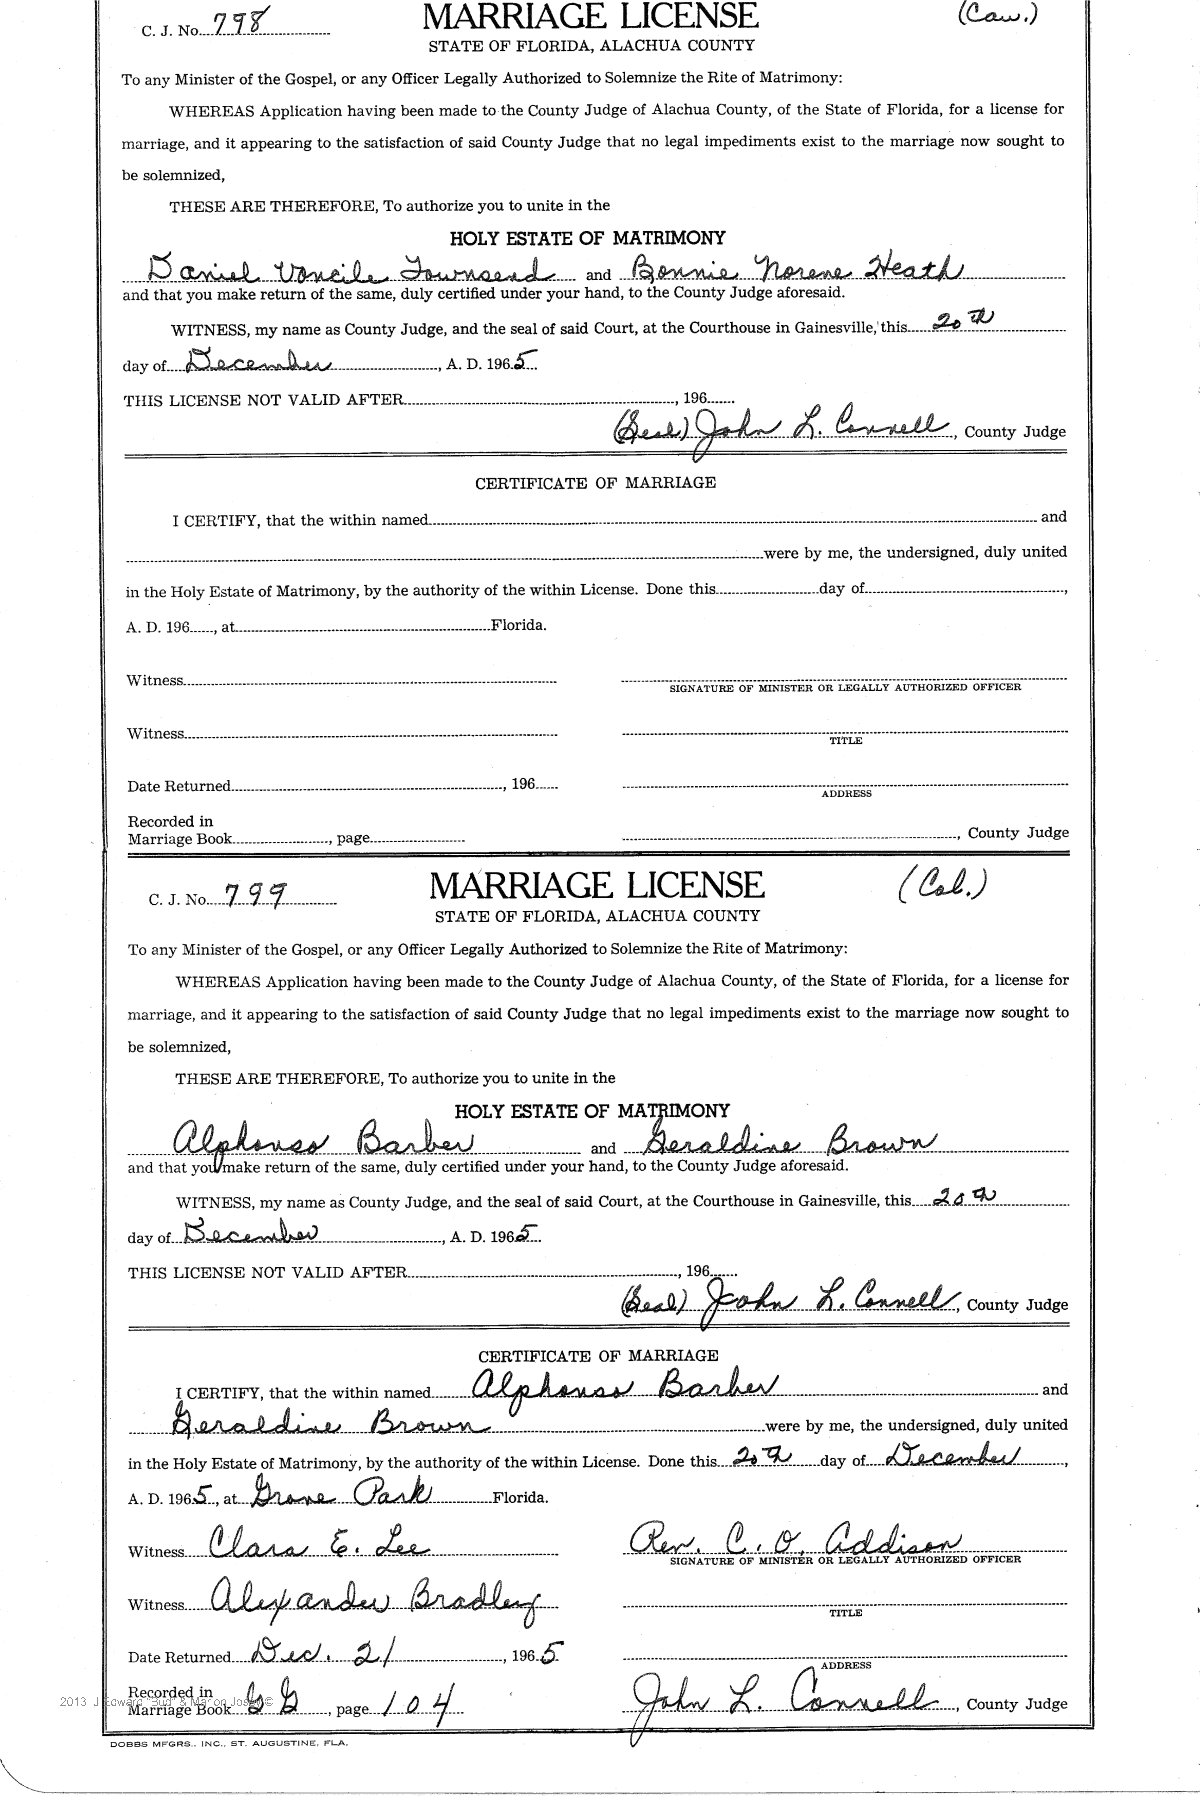 C. J. No. 798 MARRIAGE LICENSE (Cau.)
STATE OF FLORIDA, ALACHUA COUNTY
To any Minister of the Gospel, or any Officer Legally Authorized to Solemnize the Rite of Matrimony:
WHEREAS Application having been made to the County Judge of Alachua County, of the State of Florida, for a license for
marriage, and it appearing to the satisfaction of said County Judge that no legal impediments exist to the marriage now sought to
be solemnized,
THESE ARE THEREFORE, To authorize you to unite in the
HOLY ESTATE OF MATRIMONY
Daniel Voncile Townsend and Bonnie Norene Heath
and that you make return of the same, duly certified under your hand, to the County Judge aforesaid.
WITNESS, my name as County Judge, and the seal of said Court, at the Courthouse in Gainesville, this 20th
day of December, A. D. 1965
THIS LICENSE NOT VALID AFTER, 196
(Seal) John L. Connell, County Judge
CERTIFICATE OF MARRIAGE
I CERTIFY, that the within named and
were by me, the undersigned, duly united
in the Holy Estate of Matrimony, by the authority of the within License. Done this day of,
A. D. 196, at Florida.
Witness
SIGNATURE OF MINISTER OR LEGALLY AUTHORIZED OFFICER
Witness
TITLE
Date Returned, 196
ADDRESS
Recorded in
Marriage Book, page, County Judge
C. J. No. 799 MARRIAGE LICENSE (Col.)
STATE OF FLORIDA, ALACHUA COUNTY
To any Minister of the Gospel, or any Officer Legally Authorized to Solemnize the Rite of Matrimony:
WHEREAS Application having been made to the County Judge of Alachua County, of the State of Florida, for a license for
marriage, and it appearing to the satisfaction of said County Judge that no legal impediments exist to the marriage now sought to
be solemnized,
THESE ARE THEREFORE, To authorize you to unite in the
HOLY ESTATE OF MATRIMONY
Alphonso Barber and Geraldine Brown
and that you make return of the same, duly certified under your hand, to the County Judge aforesaid.
WITNESS, my name as County Judge, and the seal of said Court, at the Courthouse in Gainesville, this 20th
day of December, A. D. 1965
THIS LICENSE NOT VALID AFTER, 196
(Seal) John L. Connell, County Judge
CERTIFICATE OF MARRIAGE
I CERTIFY, that the within named Alphonso Barber and
Geraldine Brown were by me, the undersigned, duly united
in the Holy Estate of Matrimony, by the authority of the within License. Done this 20th day of December,
A. D. 1965, at Grove Park Florida.
Witness Clara E. Lee Rev. C. O. Addison
SIGNATURE OF MINISTER OR LEGALLY AUTHORIZED OFFICER
Witness Alexander Bradley
TITLE
Date Returned Dec. 21, 1965
ADDRESS
Recorded in
Marriage Book GG, page 104 John L. Connell, County Judge
2013 J Edward "Bud" & Marion
DOBBS MFGRS., INC., ST. AUGUSTINE, FLA.